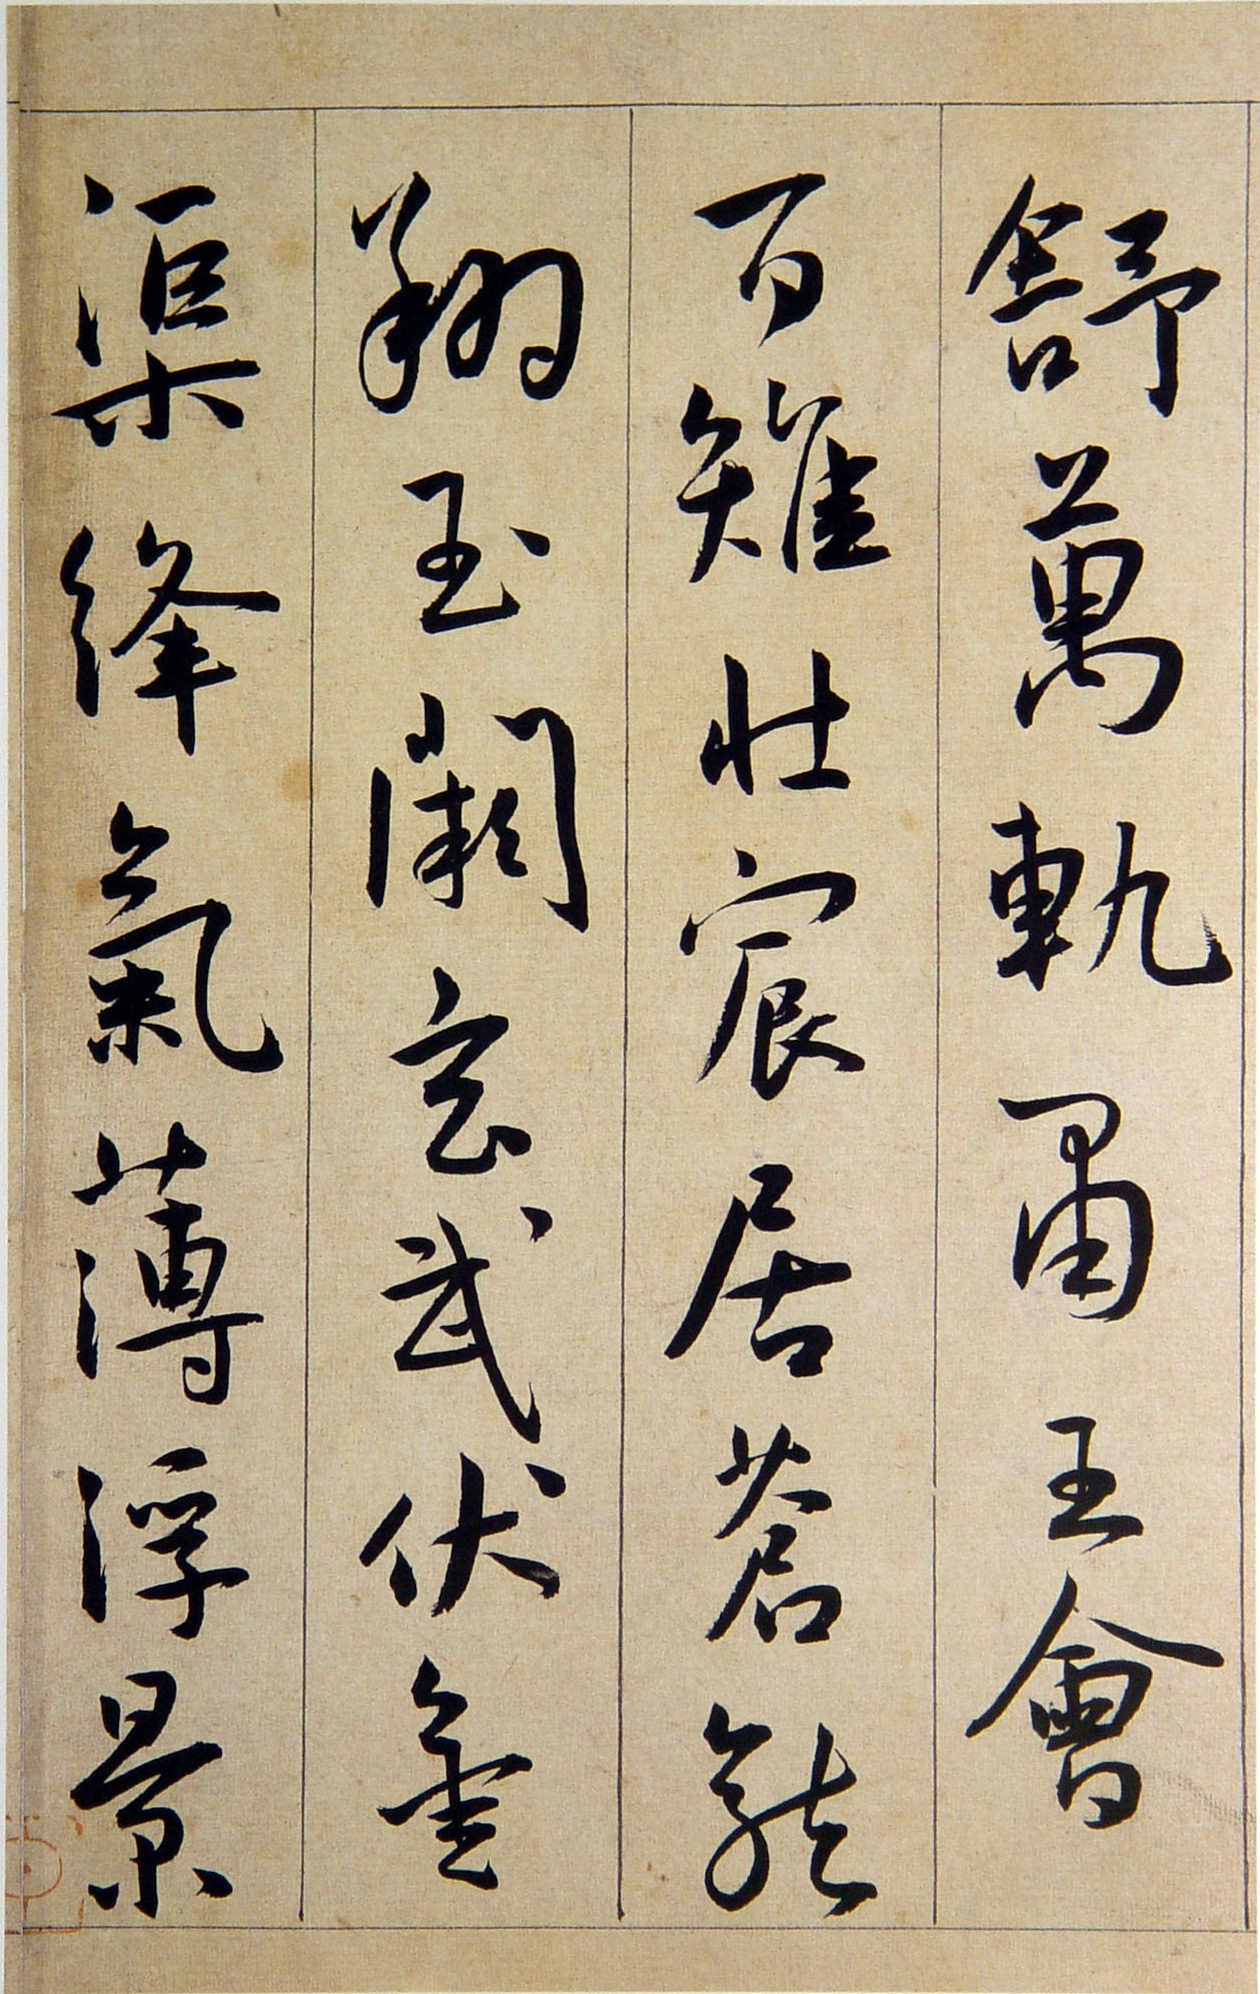 舒萬軌肅王會
百雉壯宸居蒼龍
翔玉闕玄武伏金
渠絳氣薄浮景